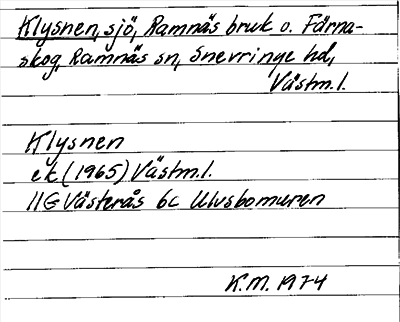 Klysnen, sjö, Ramnäs bruk o. Färna-
skog, Ramnäs sn, Snevringe hd,
Västm.l.
Klysnen
ek (1965) Västm.l.
11G Västerås 6c Ulvsbomuren
K.M. 1974